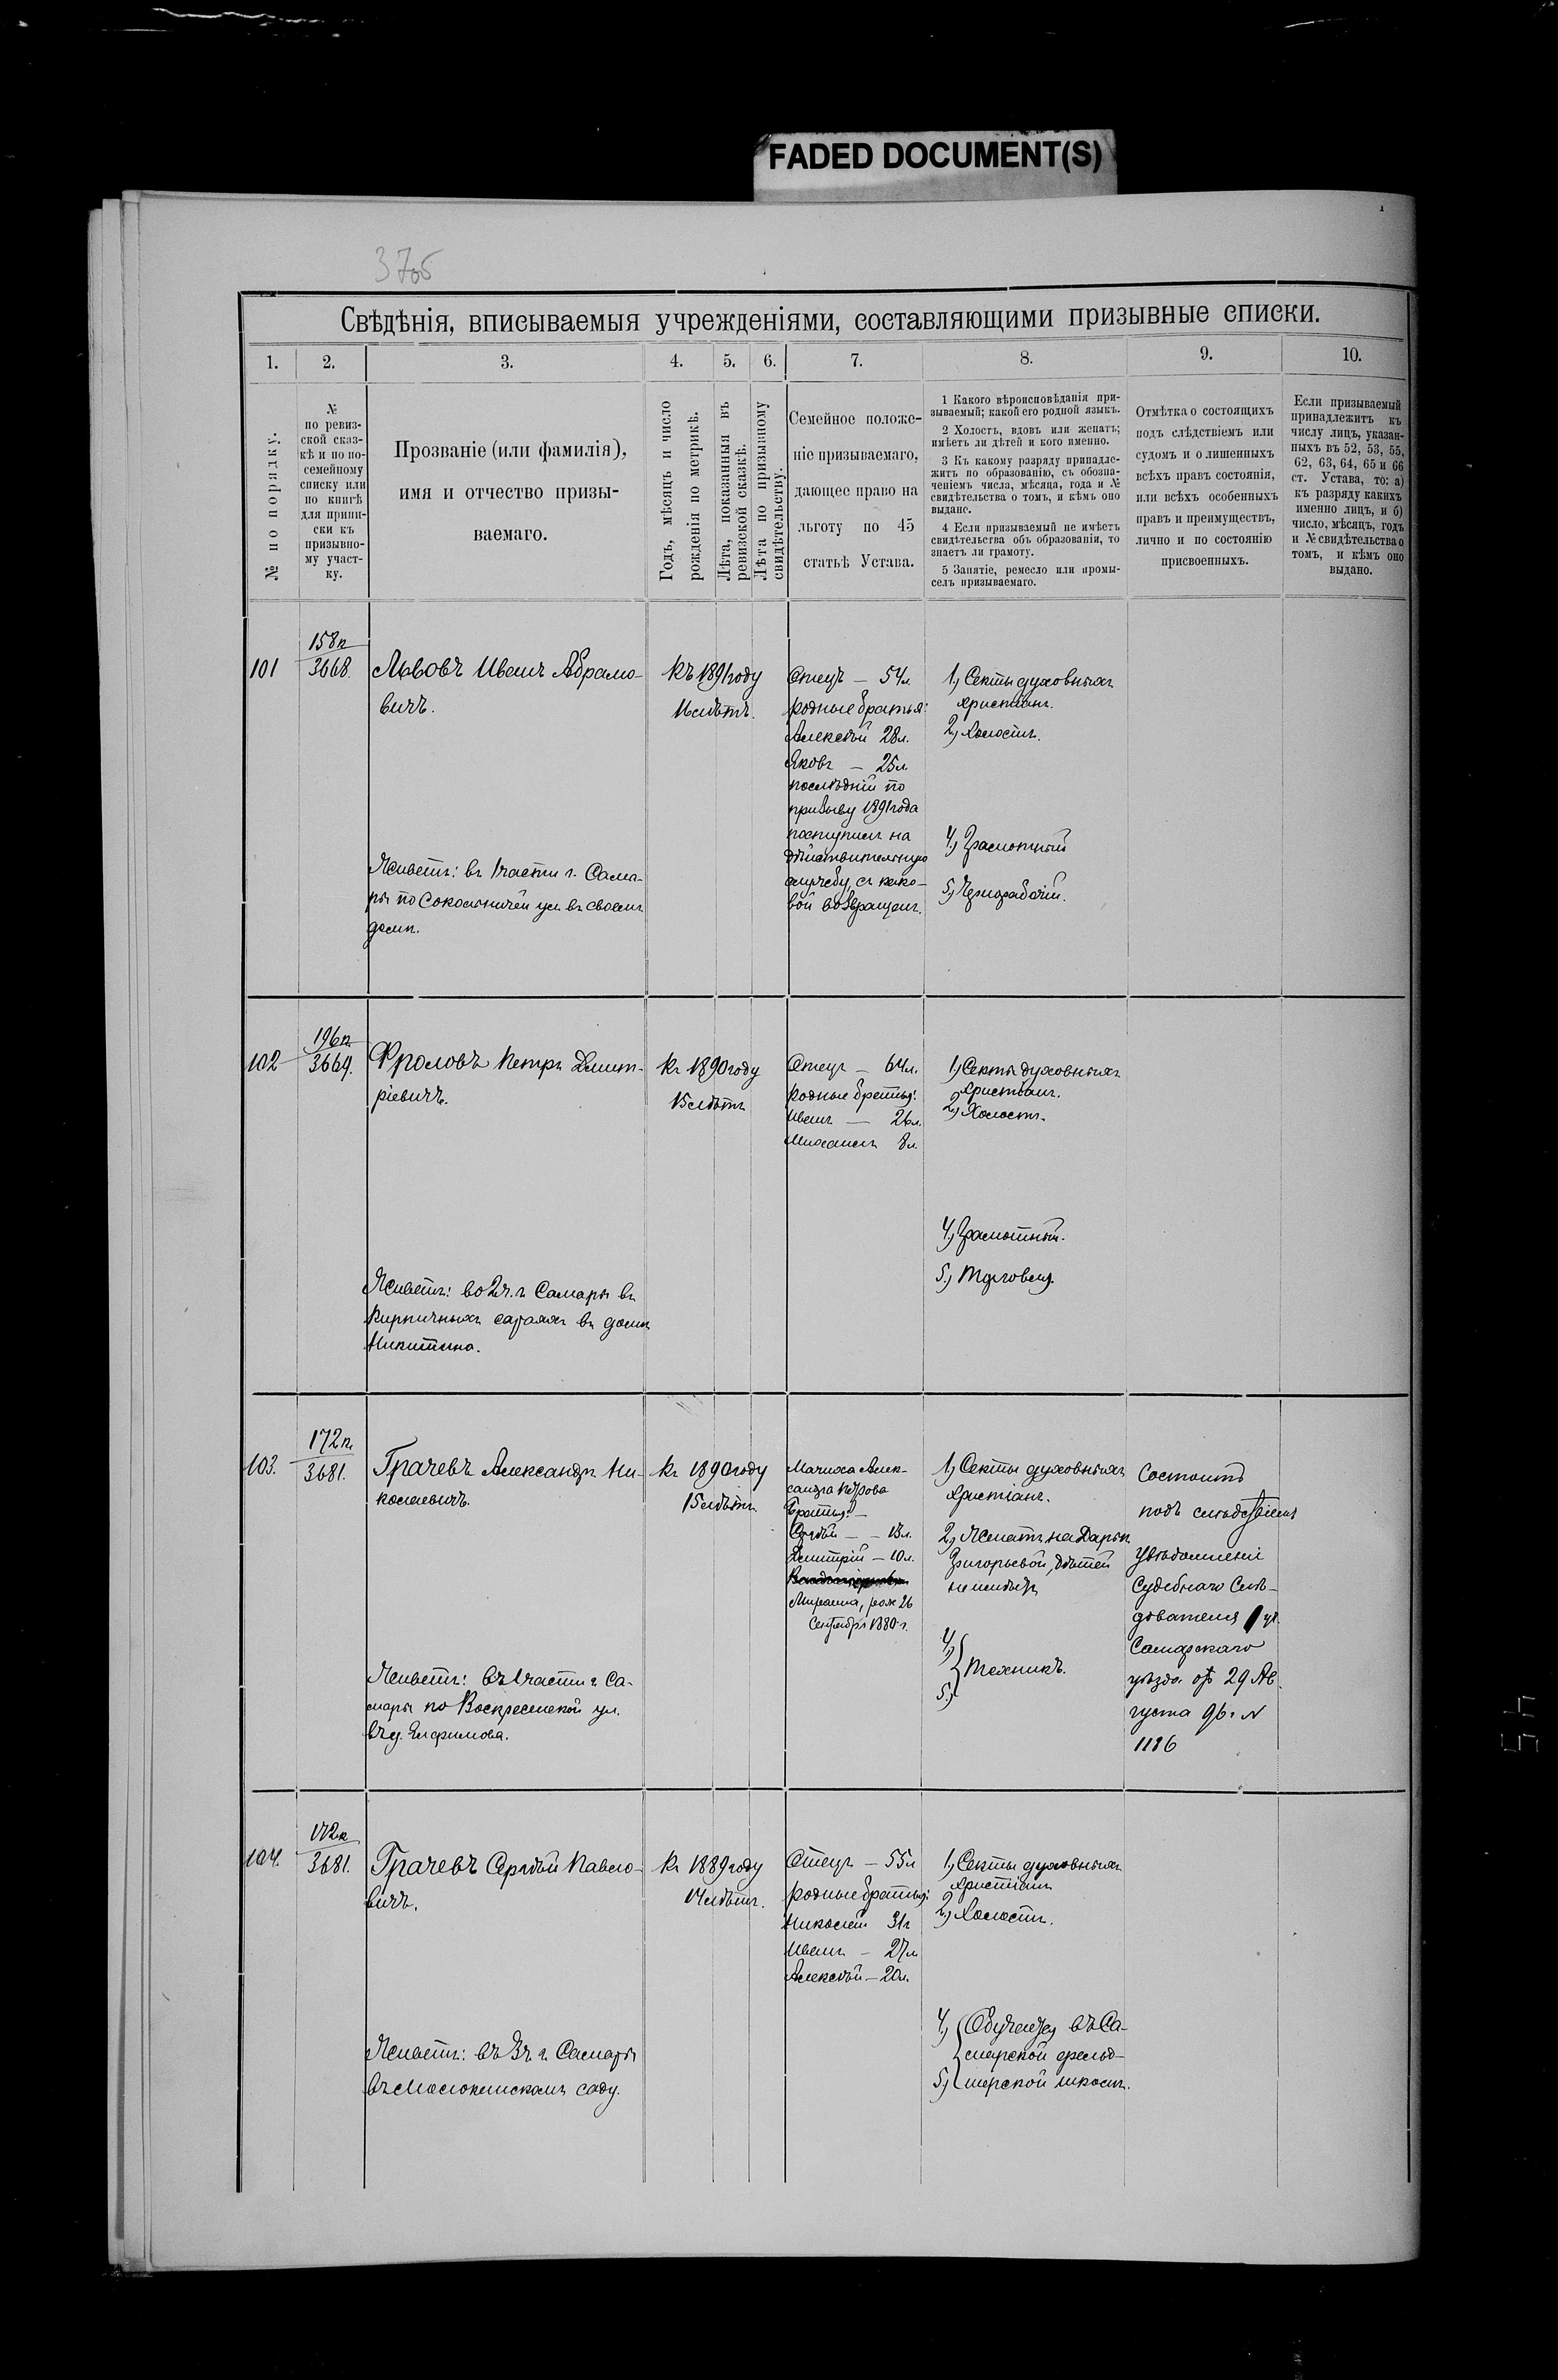 FADED DOCUMENT(S)
3705
Свѣдѣнія, вписываемыя учрежденіями, составляющими призывные списки.
1.
2.
3.
4.
5.
6.
7.
8.
9.
10.
№ по порядку.
№
по ревиз-
ской сказ-
кѣ и по по-
семейному
списку или
по книгѣ
для припи-
ски къ
призывно-
му участ-
ку.
Прозваніе (или фамилія),
имя и отчество призы-
ваемаго.
Годъ, мѣсяцъ и число
рожденія по метрикѣ.
Лѣта, показанныя въ
ревизской сказкѣ.
Лѣта по призывному
свидѣтельству.
Семейное положе-
ніе призываемаго,
дающее право на
льготу по 45
статьѣ Устава.
1 Какого вѣроисповѣданія при-
зываемый; какой его родной языкъ.
2 Холостъ, вдовъ или женатъ;
имѣетъ ли дѣтей и кого именно.
3 Къ какому разряду принадле-
житъ по образованію, съ обозна-
ченіемъ числа, мѣсяца, года и №
свидѣтельства о томъ, и кѣмъ оно
выдано.
4 Если призываемый не имѣетъ
свидѣтельства объ образованіи, то
знаетъ ли грамоту.
5 Занятіе, ремесло или промы-
селъ призываемаго.
Отмѣтка о состоящихъ
подъ слѣдствіемъ или
судомъ и о лишенныхъ
всѣхъ правъ состоянія,
или всѣхъ особенныхъ
правъ и преимуществъ,
лично и по состоянію
присвоенныхъ.
Если призываемый
принадлежитъ къ
числу лицъ, указан-
ныхъ въ 52, 53, 55,
62, 63, 64, 65 и 66
ст. Устава, то: а)
къ разряду какихъ
именно лицъ, и б)
число, мѣсяцъ, годъ
и № свидѣтельства о
томъ, и кѣмъ оно
выдано.
101
158п
3668.
Львовъ Иванъ Абрамо-
вичъ.
Живетъ: въ 1 части г. Сама-
ры по Сокольничей ул. въ своемъ
домѣ.
Къ 1891 году
16 лѣтъ.
Отецъ — 54 л.
родные братья:
Алексѣй 28 л.
Яковъ — 25 л.
послѣдній по
призыву 1891 года
поступилъ на
дѣйствительную
службу, съ како-
вой возвращенъ.
1) Секты духовныхъ
христіанъ.
2) Холостъ.
4) Грамотный
5) Чернорабочій.
102
196п
3669.
Фроловъ Петръ Дмит-
ріевичъ.
Живетъ: во 2 ч. г. Самары въ
Кирпичныхъ сараяхъ въ домѣ
Никитина.
Къ 1890 году
15 лѣтъ
Отецъ — 64 л.
родные братья:
Иванъ — 26 л.
Михаилъ 8 л.
1) Секты духовныхъ
христіанъ.
2) Холостъ.
4) Грамотный.
5) Торговля.
103.
172п.
3681.
Грачевъ Александръ Ни-
колаевичъ.
Живетъ: въ 1 части г. Са-
мары по Воскресенской ул.
въ д. Ефимова.
Къ 1890 году
15 лѣтъ
Мачиха Алек-
сандра Петрова
Братья: —
Сергѣй — 13 л.
Дмитрій — 10 л.
рож. 26
Сентября 1880 г.
1) Секты духовныхъ
христіанъ.
2) Женатъ на Дарьѣ
Григорьевой, дѣтей
не имѣетъ
4)
5)
Техникъ.
Состоитъ
подъ слѣдствіемъ
Увѣдомленіе
Судебнаго Слѣ-
дователя 1 уч.
Самарскаго
уѣзда отъ 29 Ав-
густа 96 г. №
1186
104.
172п
3681.
Грачевъ Сергѣй Павло-
вичъ.
Живетъ: въ 3 ч. г. Самары
въ Молоканскомъ саду.
Къ 1889 году
14 лѣтъ.
Отецъ — 55 л
родные братья:
Николай 31 г
Иванъ — 27 л
Алексѣй — 20 л.
1) Секты духовныхъ
христіанъ
2) Холостъ.
4)
5)
Обучается въ Са-
марской фельд-
шерской школѣ.